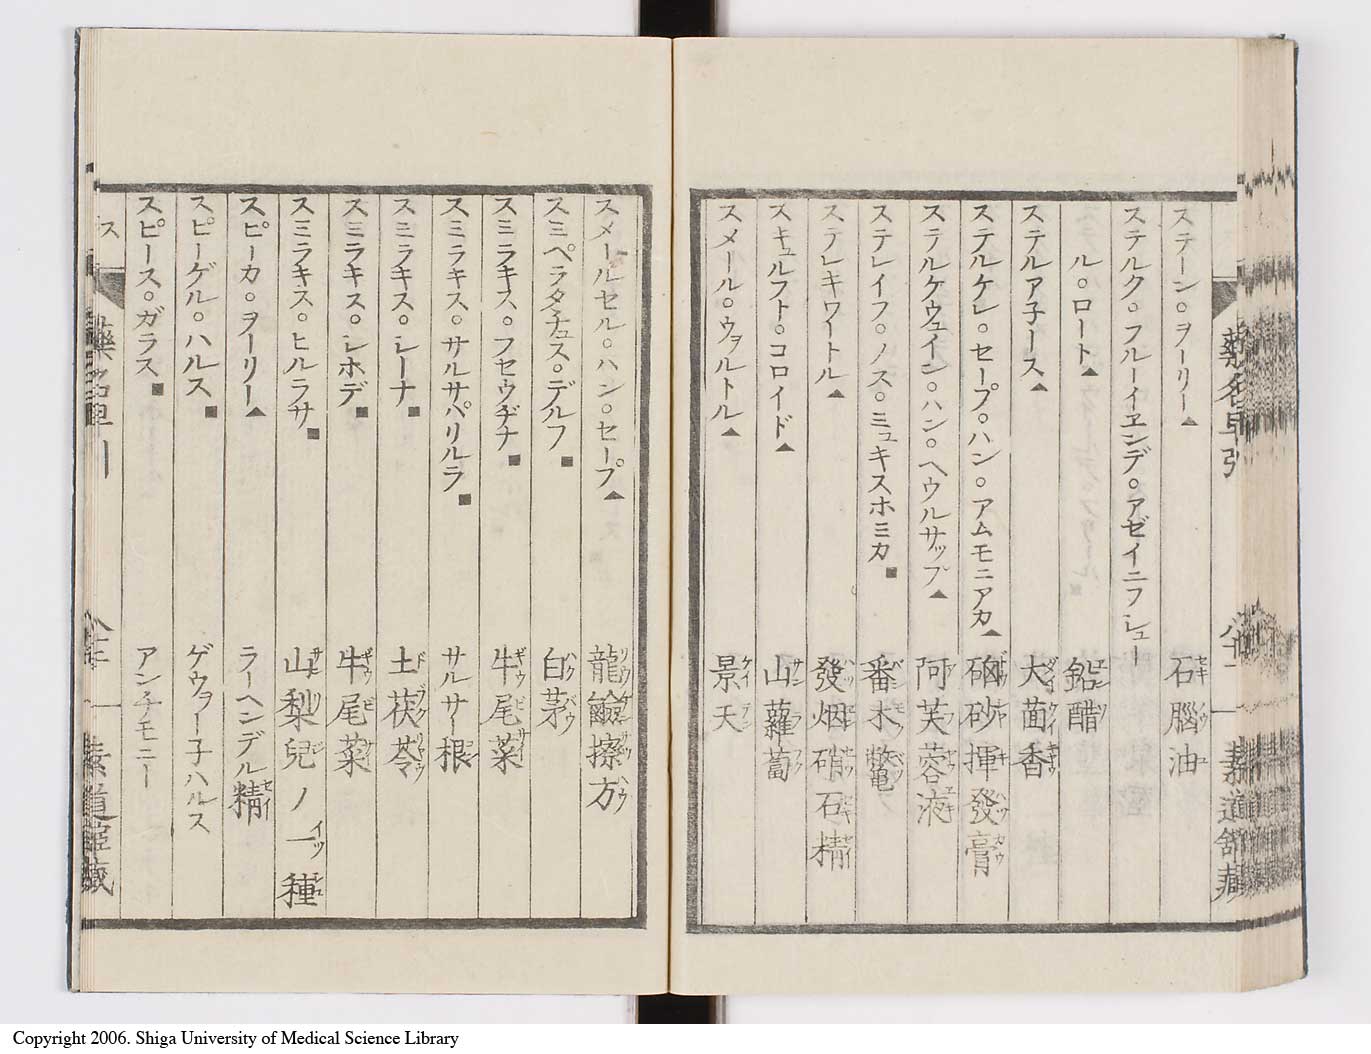 ステーン○ヲーリー▲ 石腦油
ステルク○フルーイヱンデ○アゼイニフシュー
ル○ロート▲ 鉛醋
ステルア子ース▲ 大茴香
ステルケレ○セープ○ハン○アムモニアカ▲ 硇砂揮發膏
ステルケウェイン○ハン○ヘウルサップ▲ 阿芙蓉液
ステレイフ○ノス○ミュキスホミカ■ 番木鼈
ステレキワートル▲ 發烟硝石精
スキュルフト○コロイド▲ 山蘿蔔
スメール○ウヲルトル▲ 景天
藥名早引 八十二 素道館藏
スメールセル○ハン○セープ▲ 龍鹼擦方
スミペラタチュス○デルフ■ 白茅
スミラキス○フセウヂナ■ 牛尾菜
スミラキス○サルサパリルラ■ サルサー根
スミラキス○レーナ■ 土茯苓
スミラキス○レホデ■ 牛尾菜
スミラキス○ヒルラサ■ 山梨兒ノ一種
スピーカ○ヲーリー▲ ラーヘンデル精
スピーゲル○ハルス■ ゲウヲー子ハルス
スピース○ガラス■ アンチモニー
ス 藥名早引
Copyright 2006. Shiga University of Medical Science Library